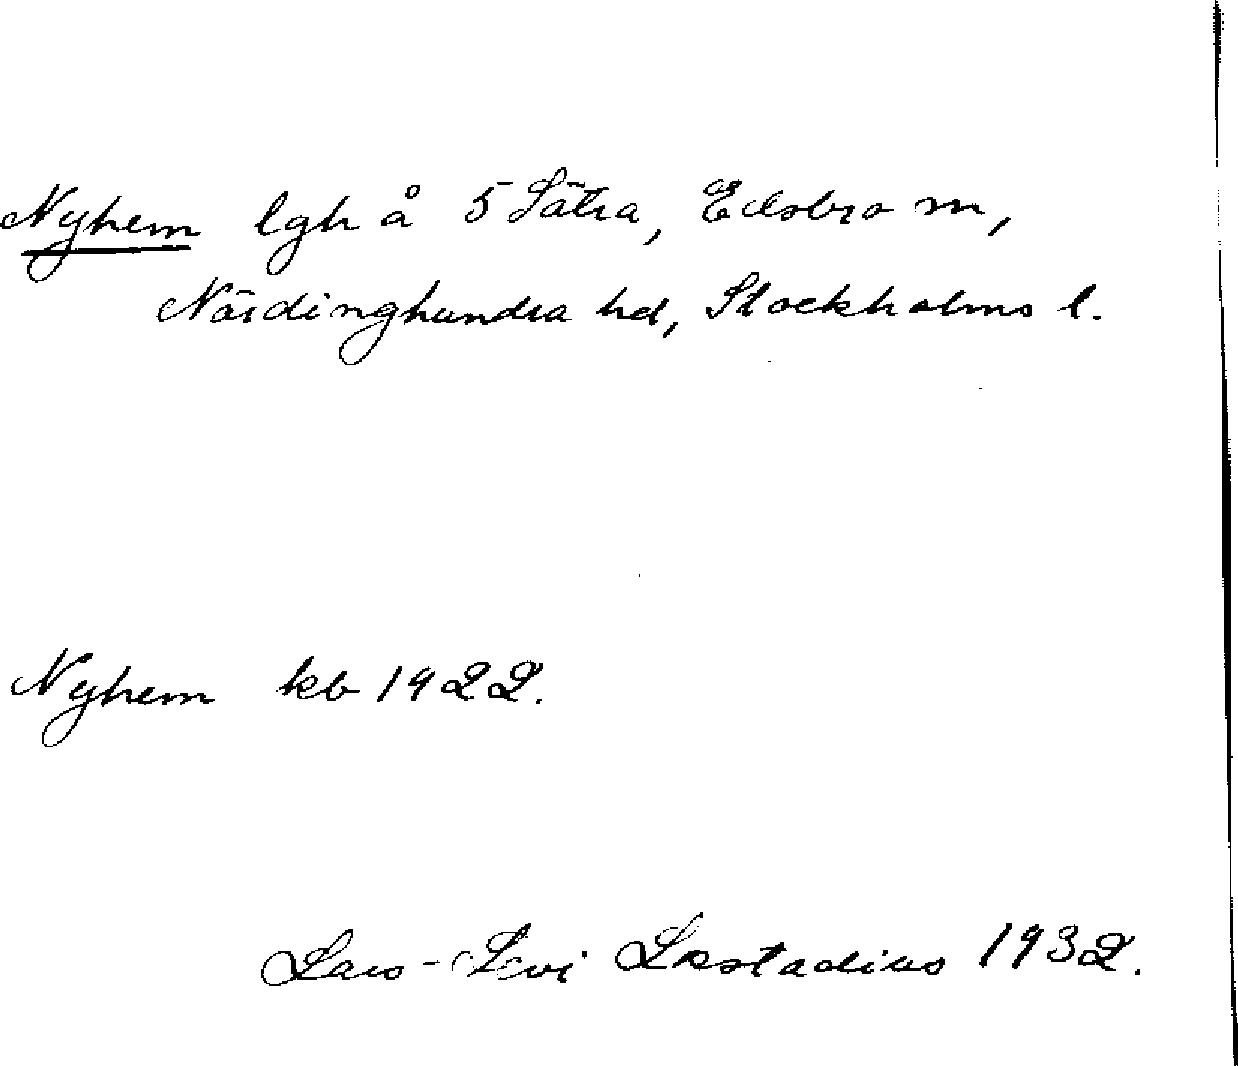 Nyhem lgh å 5 Sätra, Edsbro sn,
Närdinghundra hd, Stockholms l.
Nyhem kb 1922.
Lars-Levi Læstadius 1932.